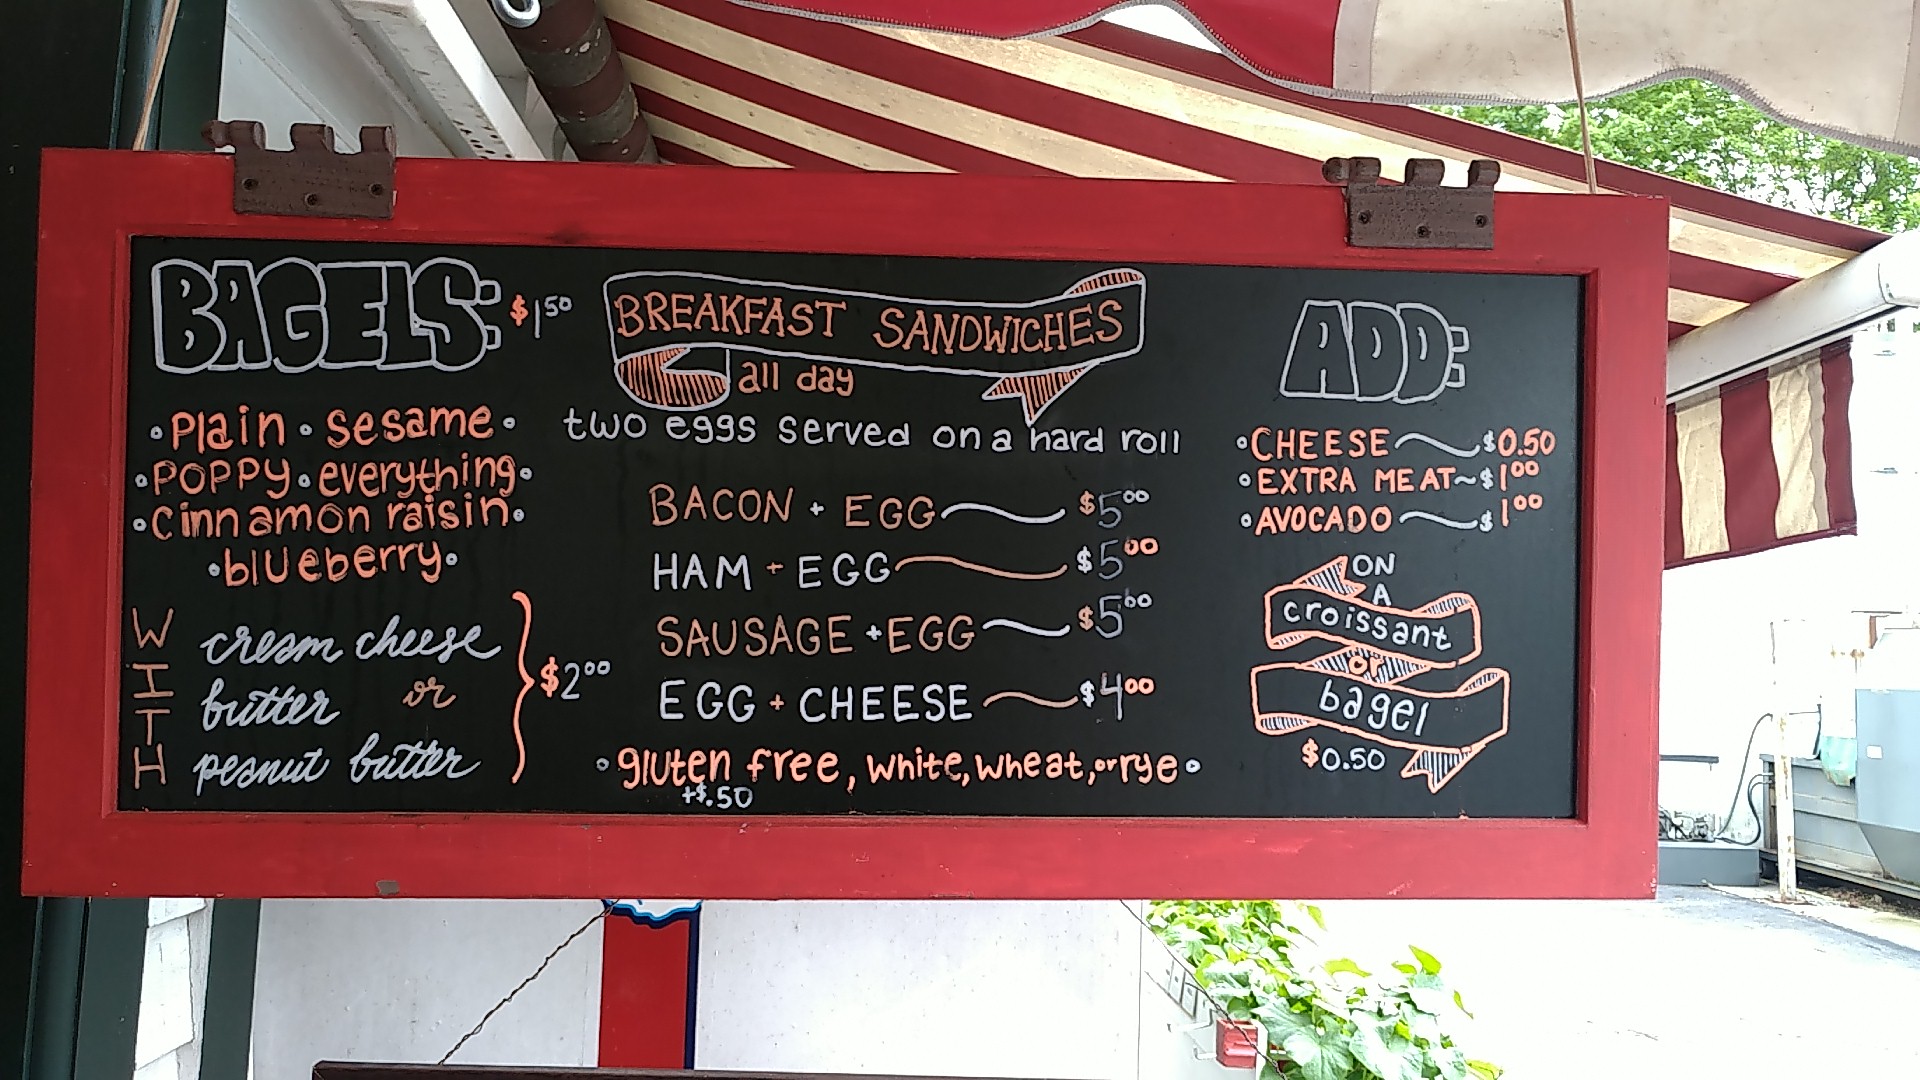 BAGELS: $1 50
• Plain • sesame •
• POPPY • everything •
• Cinnamon raisin •
• blueberry •
WITH
cream cheese
butter or
peanut butter
$2 00
BREAKFAST SANDWICHES
all day
two eggs served on a hard roll
BACON + EGG $5 00
HAM + EGG $5 00
SAUSAGE + EGG $5 00
EGG + CHEESE $4 00
• gluten free, white, wheat, or rye •
+$.50
ADD:
• CHEESE $0.50
• EXTRA MEAT $1 00
• AVOCADO $1 00
ON
A
croissant
or
bagel
$0.50